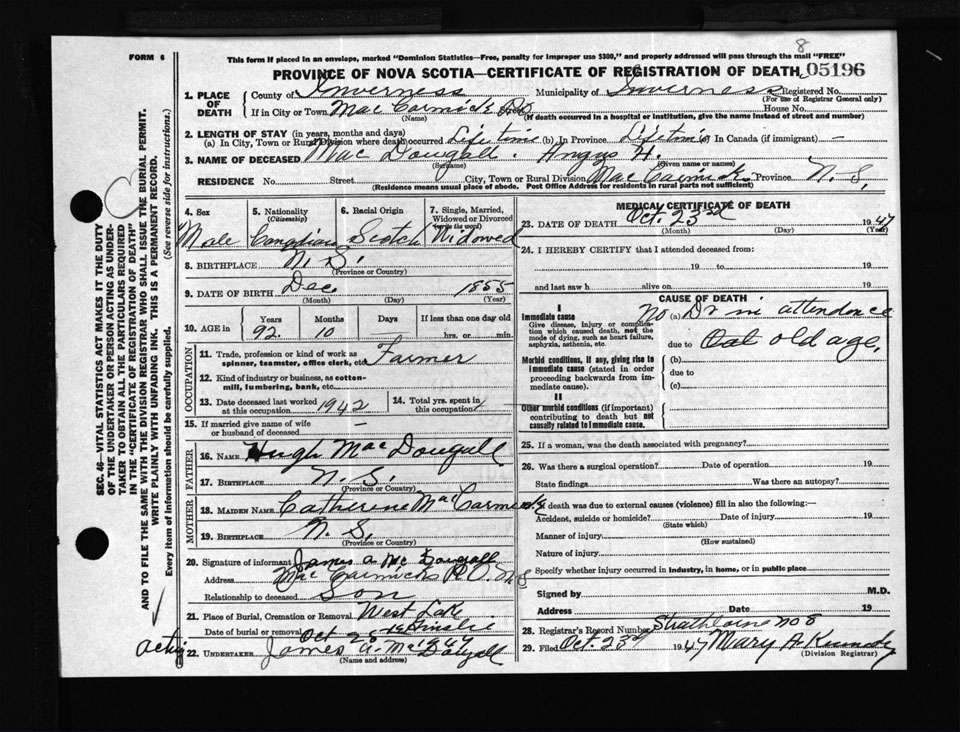 FORM 6
This form if placed in an envelope, marked "Dominion Statistics—Free, penalty for improper use $300," and properly addressed will pass through the mail "FREE"
8
PROVINCE OF NOVA SCOTIA—CERTIFICATE OF REGISTRATION OF DEATH 05196
1. PLACE OF DEATH
County of Inverness Municipality of Inverness Registered No.
(For use of Registrar General only)
If in City or Town MacCormick P.O. Street House No.
(Name) (If death occurred in a hospital or institution, give the name instead of street and number)
2. LENGTH OF STAY (in years, months and days)
(a) In City, Town or Rural Division where death occurred Lifetime (b) In Province Lifetime (c) In Canada (if immigrant) —
3. NAME OF DECEASED MacDougall. Angus H.
(Surname) (Given name or names)
RESIDENCE No. Street City, Town or Rural Division MacCormick Province N. S.
(Residence means usual place of abode. Post Office Address for residents in rural parts not sufficient)
4. Sex
Male
5. Nationality (Citizenship)
Canadian
6. Racial Origin
Scotch
7. Single, Married, Widowed or Divorced (write the word)
Widowed
8. BIRTHPLACE N. S.
(Province or Country)
9. DATE OF BIRTH Dec 1855
(Month) (Day) (Year)
10. AGE in
Years Months Days If less than one day old
92 10 hrs. or min.
OCCUPATION
11. Trade, profession or kind of work as spinner, teamster, office clerk, etc. Farmer
12. Kind of industry or business, as cotton-mill, lumbering, bank, etc.
13. Date deceased last worked at this occupation 1942
14. Total yrs. spent in this occupation
15. If married give name of wife or husband of deceased —
FATHER
16. NAME Hugh MacDougall
17. BIRTHPLACE N. S.
(Province or Country)
MOTHER
18. MAIDEN NAME Catherine MacCormick
19. BIRTHPLACE N. S.
(Province or Country)
20. Signature of informant James A McDougall
Address MacCormicks P.O. N S
Relationship to deceased Son
21. Place of Burial, Cremation or Removal West Lake
Date of burial or removal Oct 19
acting
22. UNDERTAKER James A. McDougall
(Name and address)
MEDICAL CERTIFICATE OF DEATH
23. DATE OF DEATH Oct. 23rd 1947
(Month) (Day) (Year)
24. I HEREBY CERTIFY that I attended deceased from:
19 to 19
and last saw h alive on 19
CAUSE OF DEATH
I
Immediate cause
Give disease, injury or complication which caused death, not the mode of dying, such as heart failure, asphyxia, asthenia, etc.
No (a) Dr in attendence
due to old age,
Morbid conditions, if any, giving rise to immediate cause (stated in order proceeding backwards from immediate cause).
(b)
due to
(c)
II
Other morbid conditions (if important) contributing to death but not causally related to immediate cause.
25. If a woman, was the death associated with pregnancy?
26. Was there a surgical operation? Date of operation 19
State findings Was there an autopsy?
27. If death was due to external causes (violence) fill in also the following:—
Accident, suicide or homicide? Date of injury 19
(State which)
Manner of injury
(How sustained)
Nature of injury
Specify whether injury occurred in industry, in home, or in public place
Signed by M.D.
Address Date 19
28. Registrar's Record Number Strathlorne no 8
29. Filed Oct. 23rd 1947 Mary A Kennedy
(Division Registrar)
SEC. 46—VITAL STATISTICS ACT MAKES IT THE DUTY
OF THE UNDERTAKER OR PERSON ACTING AS UNDERTAKER TO OBTAIN ALL THE PARTICULARS REQUIRED
IN THE "CERTIFICATE OF REGISTRATION OF DEATH"
AND TO FILE THE SAME WITH THE DIVISION REGISTRAR WHO SHALL ISSUE THE BURIAL PERMIT.
WRITE PLAINLY WITH UNFADING INK. THIS IS A PERMANENT RECORD.
Every item of information should be carefully supplied. (See reverse side for instructions.)